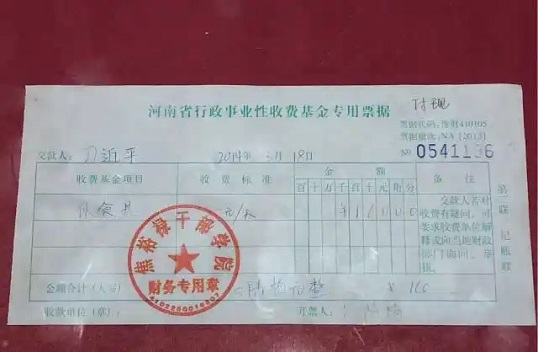 河南省行政事业性收费基金专用票据
付现
票据代码:豫财410105
票据批次:NA [2013]
№ 0541136
交款人: 刁近平
2014年3月18日
收费基金项目
收费标准
金额
备注
百十万千百十元角分
伙食费
元/天
¥ 1 6 0 0 0
交款人若对
收费有疑问,可
要求收费单位解
释或向当地财政
部门询问、举
报。
第 联 记账联
焦裕禄干部学院
财务专用章
4102260016302
金额合计(大写)
壹佰陆拾元整
¥ 160
收款单位(章):
开票人: